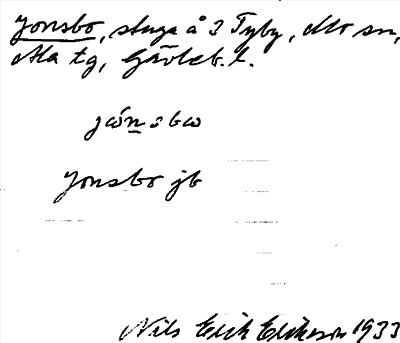 Jonsbo, stuga å 3 Tyby, Mo sn,
Ala tg, Gävleb. l.
jώn sbω
Jonsbo jb
Nils Erik Erikson 1933